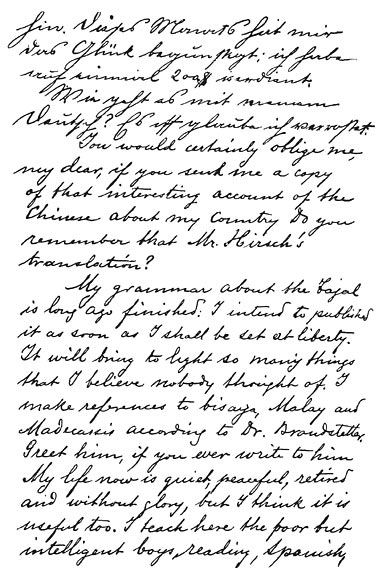 hin. Dieses Monats hat mir
das Glück begünstigt: ich habe
auf einmal 200$ verdient.
Wie geht es mit meinem
Deutsch? Es ist glaube ich verrostet.
You would certainly oblige me,
my dear, if you send me a copy
of that interesting account of the
Chinese about my Country Do you
remember that Mr. Hirsch's
translation?
My grammar about the Tagal
is long ago finished: I intend to published
it as soon as I shall be set at liberty.
It will bring to light so many things
that I believe nobody thought of. I
make references to bisaya, Malay and
Madecassis according to Dr. Brandstetter.
Greet him, if you ever write to him
My life now is quiet, peaceful, retired
and without glory, but I think it is
useful too. I teach here the poor but
intelligent boys, reading, Spanish,